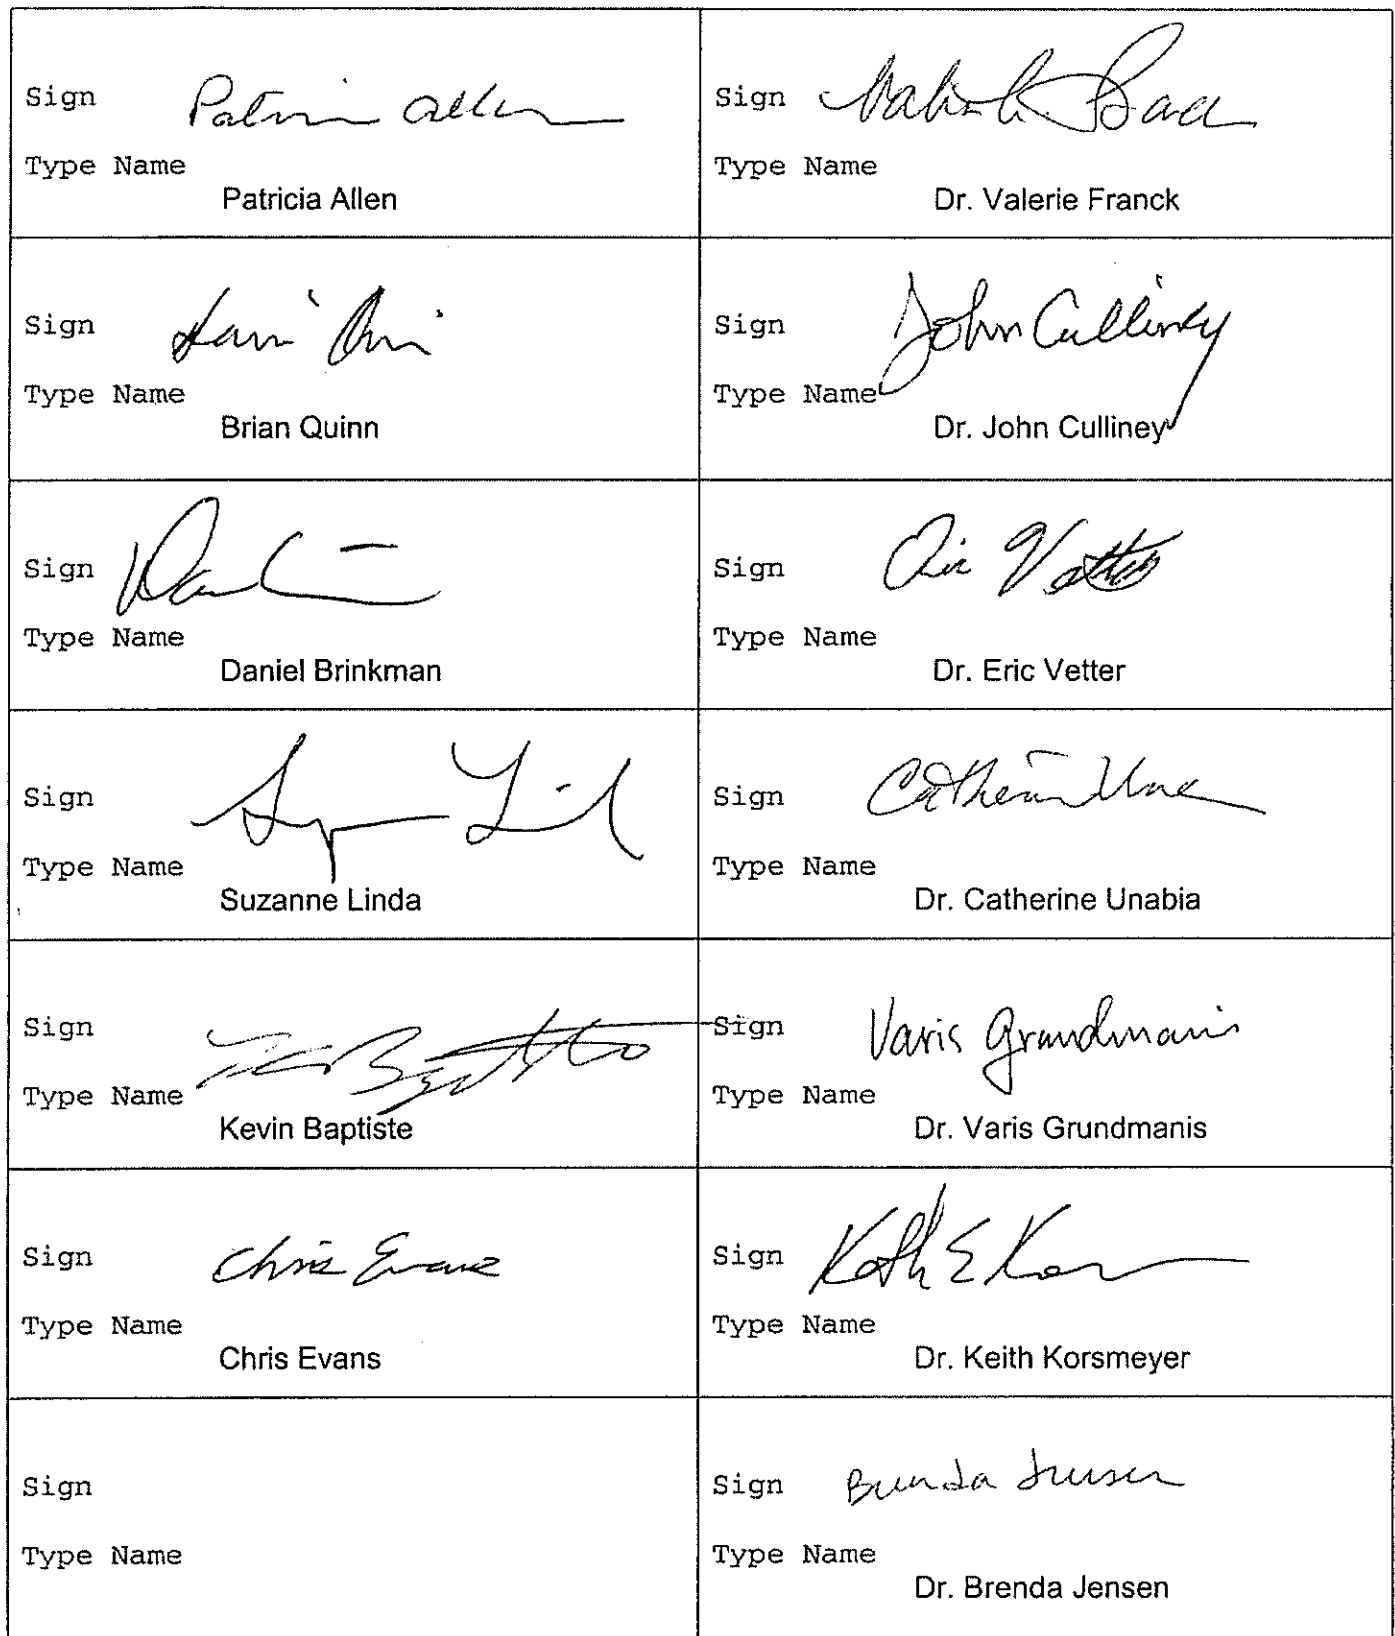 Sign Patricia Allen
Type Name
Patricia Allen
Sign
Type Name
Dr. Valerie Franck
Sign
Type Name
Brian Quinn
Sign John Culliney
Type Name
Dr. John Culliney
Sign
Type Name
Daniel Brinkman
Sign Eric Vetter
Type Name
Dr. Eric Vetter
Sign
Type Name
Suzanne Linda
Sign
Type Name
Dr. Catherine Unabia
Sign
Type Name
Kevin Baptiste
Sign Varis Grundmanis
Type Name
Dr. Varis Grundmanis
Sign Chris Evans
Type Name
Chris Evans
Sign
Type Name
Dr. Keith Korsmeyer
Sign
Type Name
Sign Brenda Jensen
Type Name
Dr. Brenda Jensen